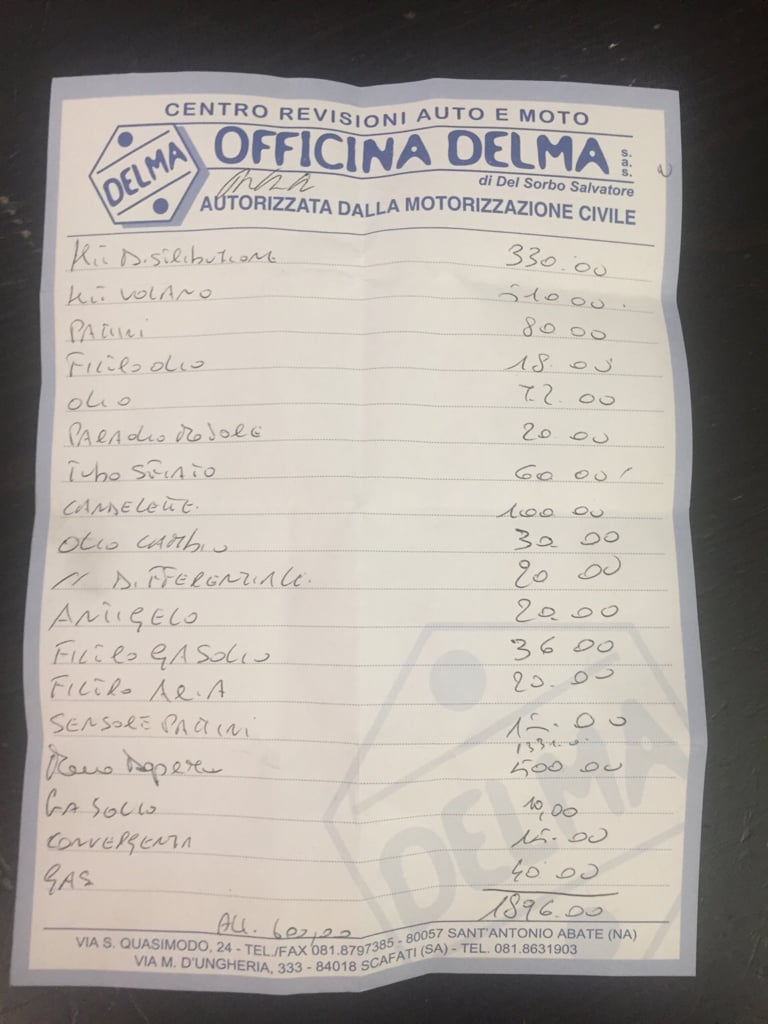 CENTRO REVISIONI AUTO E MOTO
DELMA
OFFICINA DELMA s.a.s.
di Del Sorbo Salvatore
AUTORIZZATA DALLA MOTORIZZAZIONE CIVILE
Kit Distribuzione 330.00
Kit VOLANO 510 00
PATTINI 80 00
FILTRO OLIO 18.00
OLIO 72.00
PARAOLIO MOTORE 20 00
TUBO STERZO 60 00
CANDELETTE 100 00
OLIO CAMBIO 30 00
// DIFFERENZIALE 20 00
ANTIGELO 20.00
FILTRO GASOLIO 36.00
FILTRO ARIA 20.00
SENSORE PATTINI 15.00
1331.0
Mano d'opera 500 00
GASOLIO 10,00
CONVERGENZA 15.00
GAS 40 00
1896.00
Acc. 600,00
DELMA
VIA S. QUASIMODO, 24 - TEL./FAX 081.8797385 - 80057 SANT'ANTONIO ABATE (NA)
VIA M. D'UNGHERIA, 333 - 84018 SCAFATI (SA) - TEL. 081.8631903